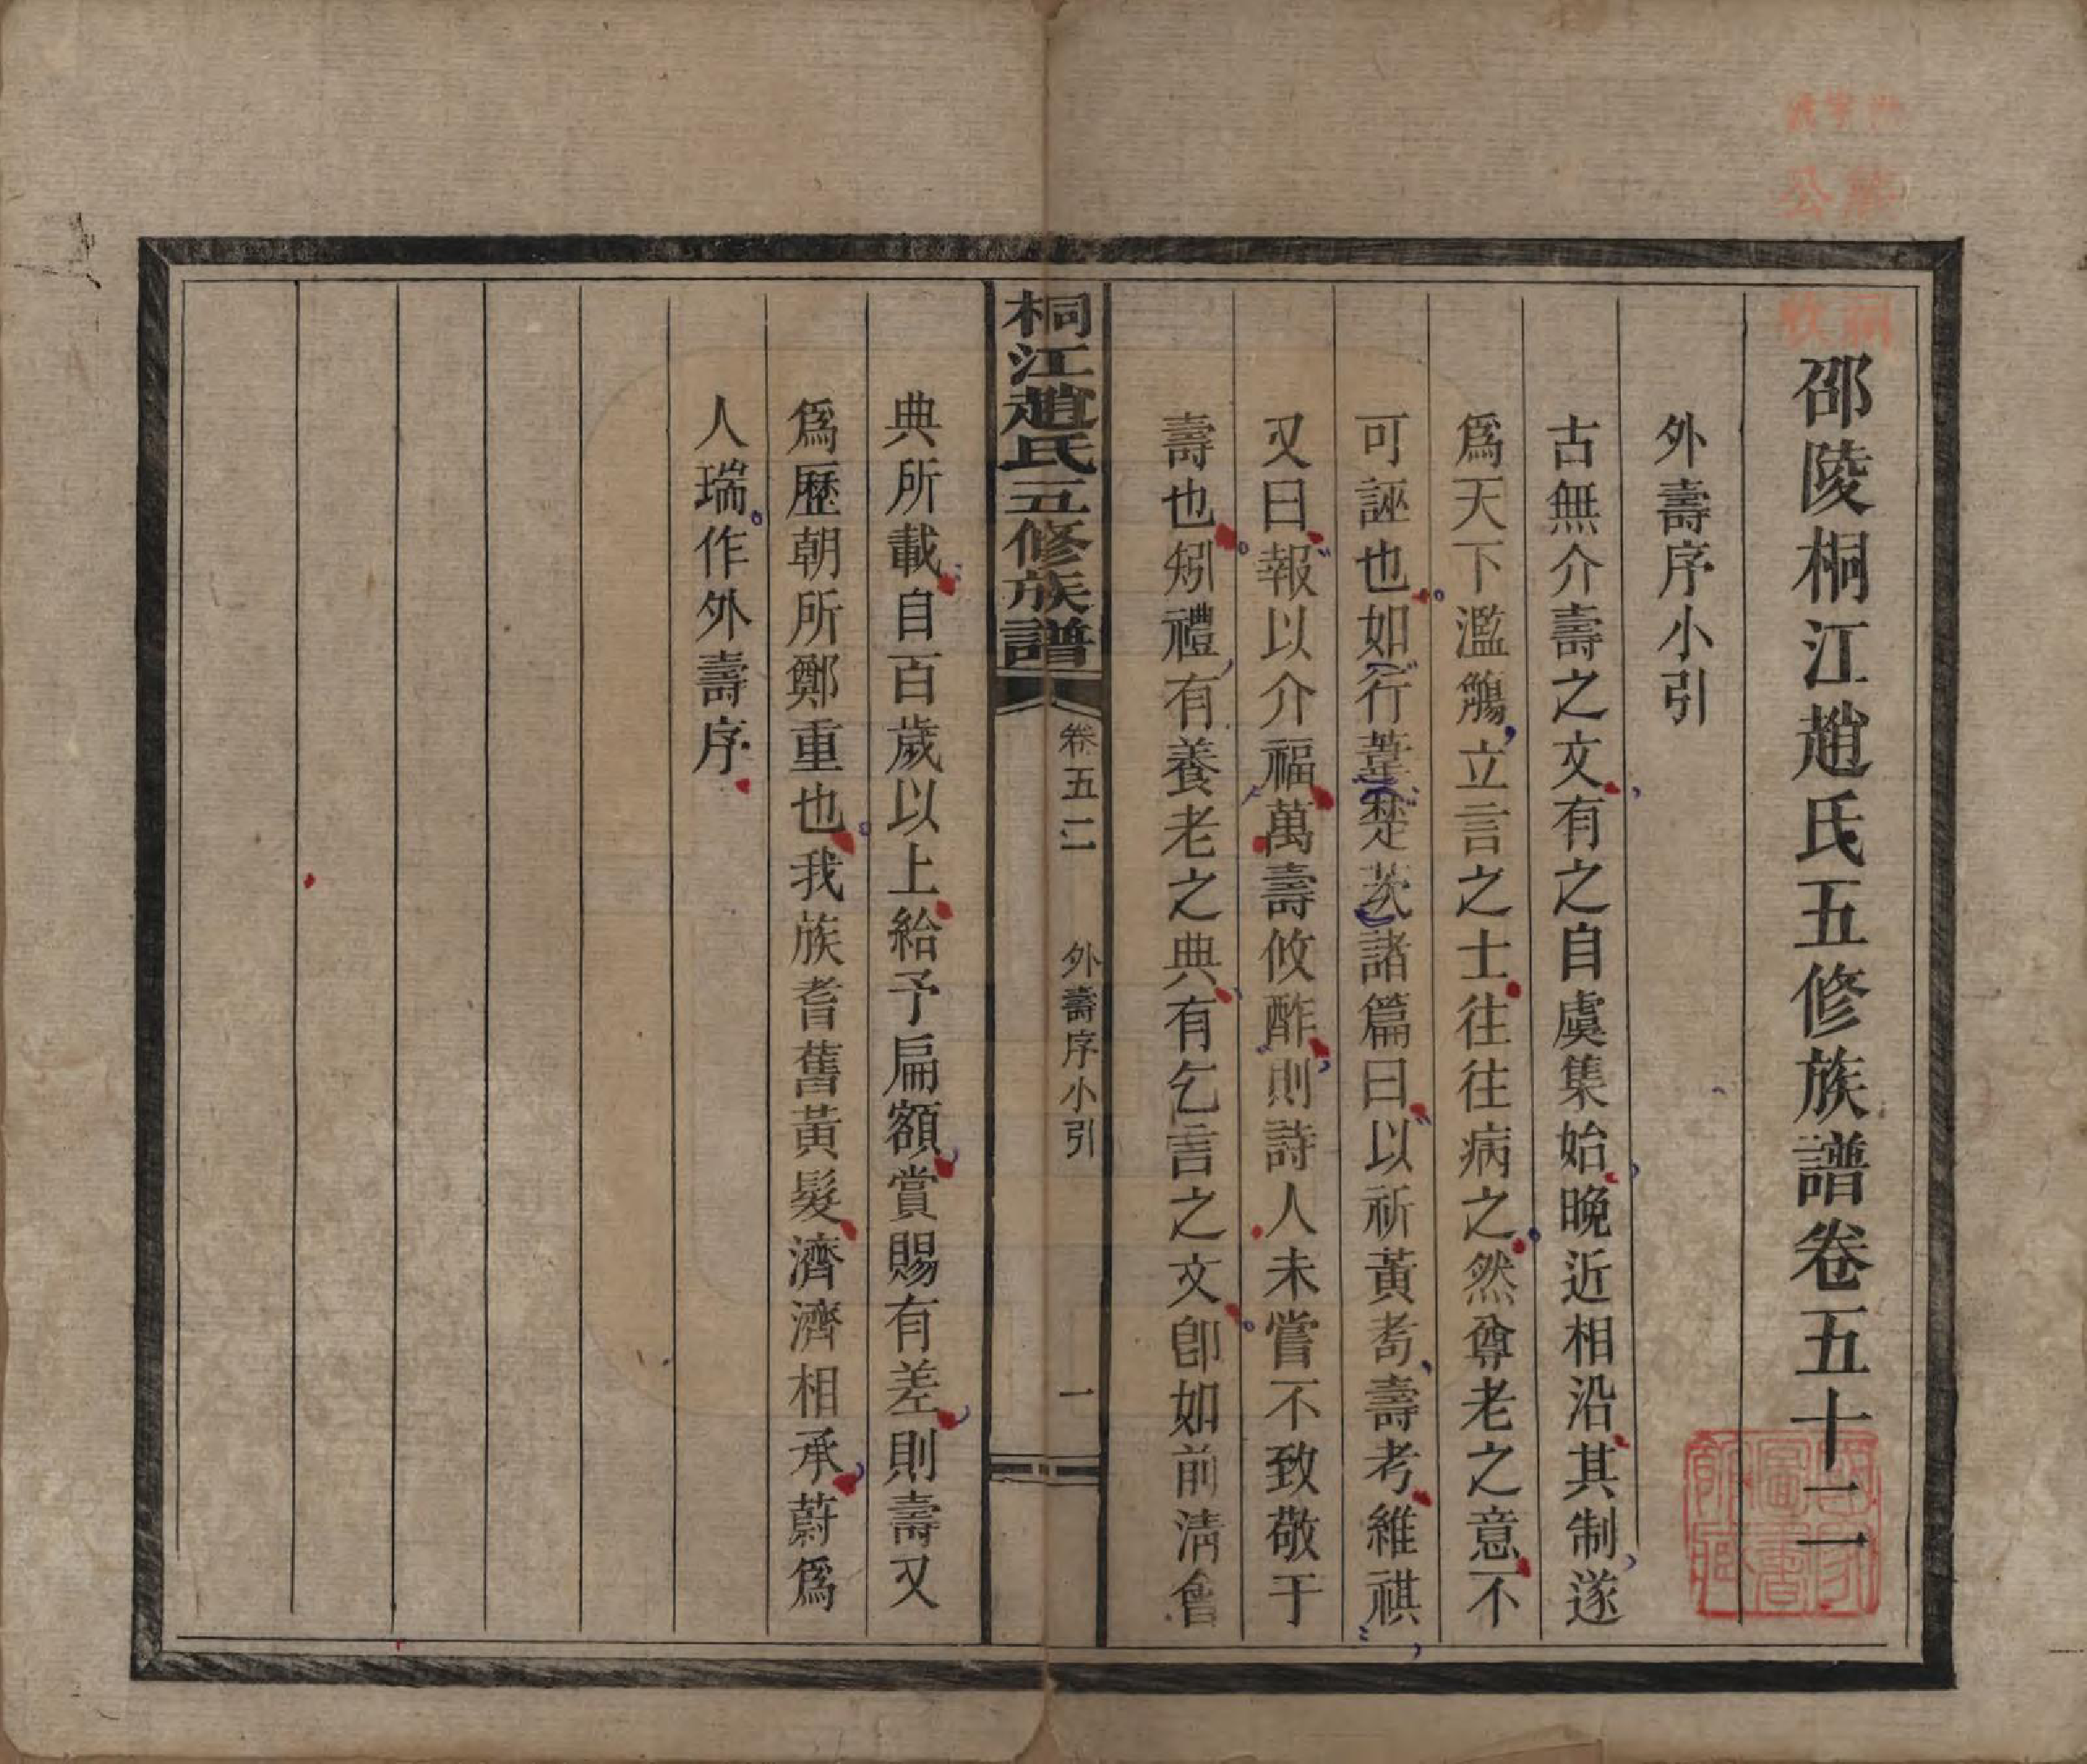 邵陵桐江趙氏五修族譜卷五十二
外壽序小引
古無介壽之文有之自虞集始晚近相沿其制遂
爲天下濫觴立言之士往往病之然尊老之意不
可誣也如行葦楚茨諸篇曰以祈黃耇壽考維祺
又曰報以介福萬壽攸酢則詩人未嘗不致敬于
壽也矧禮有養老之典有乞言之文卽如前淸會
桐江趙氏五修族譜
卷五二
外壽序小引
一
典所載自百歲以上給予扁額賞賜有差則壽又
爲歷朝所鄭重也我族耆舊黃髮濟濟相承蔚爲
人瑞作外壽序